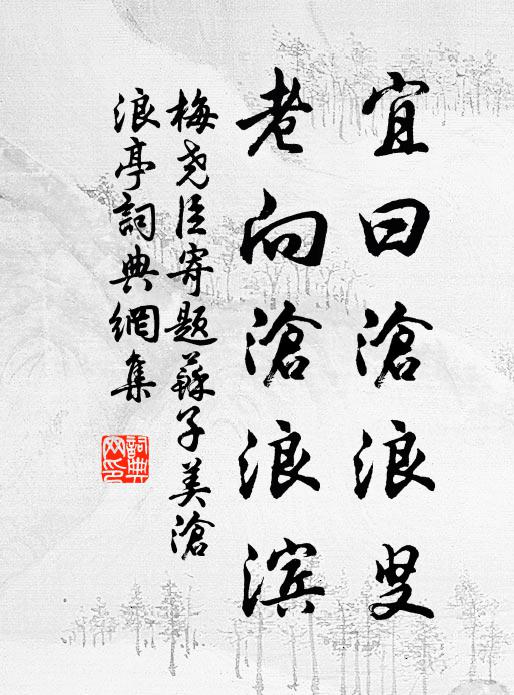 宜曰滄浪叟
老向滄浪滨
梅尧臣寄題蘇子美滄
浪亭詞典網集
詞典网印